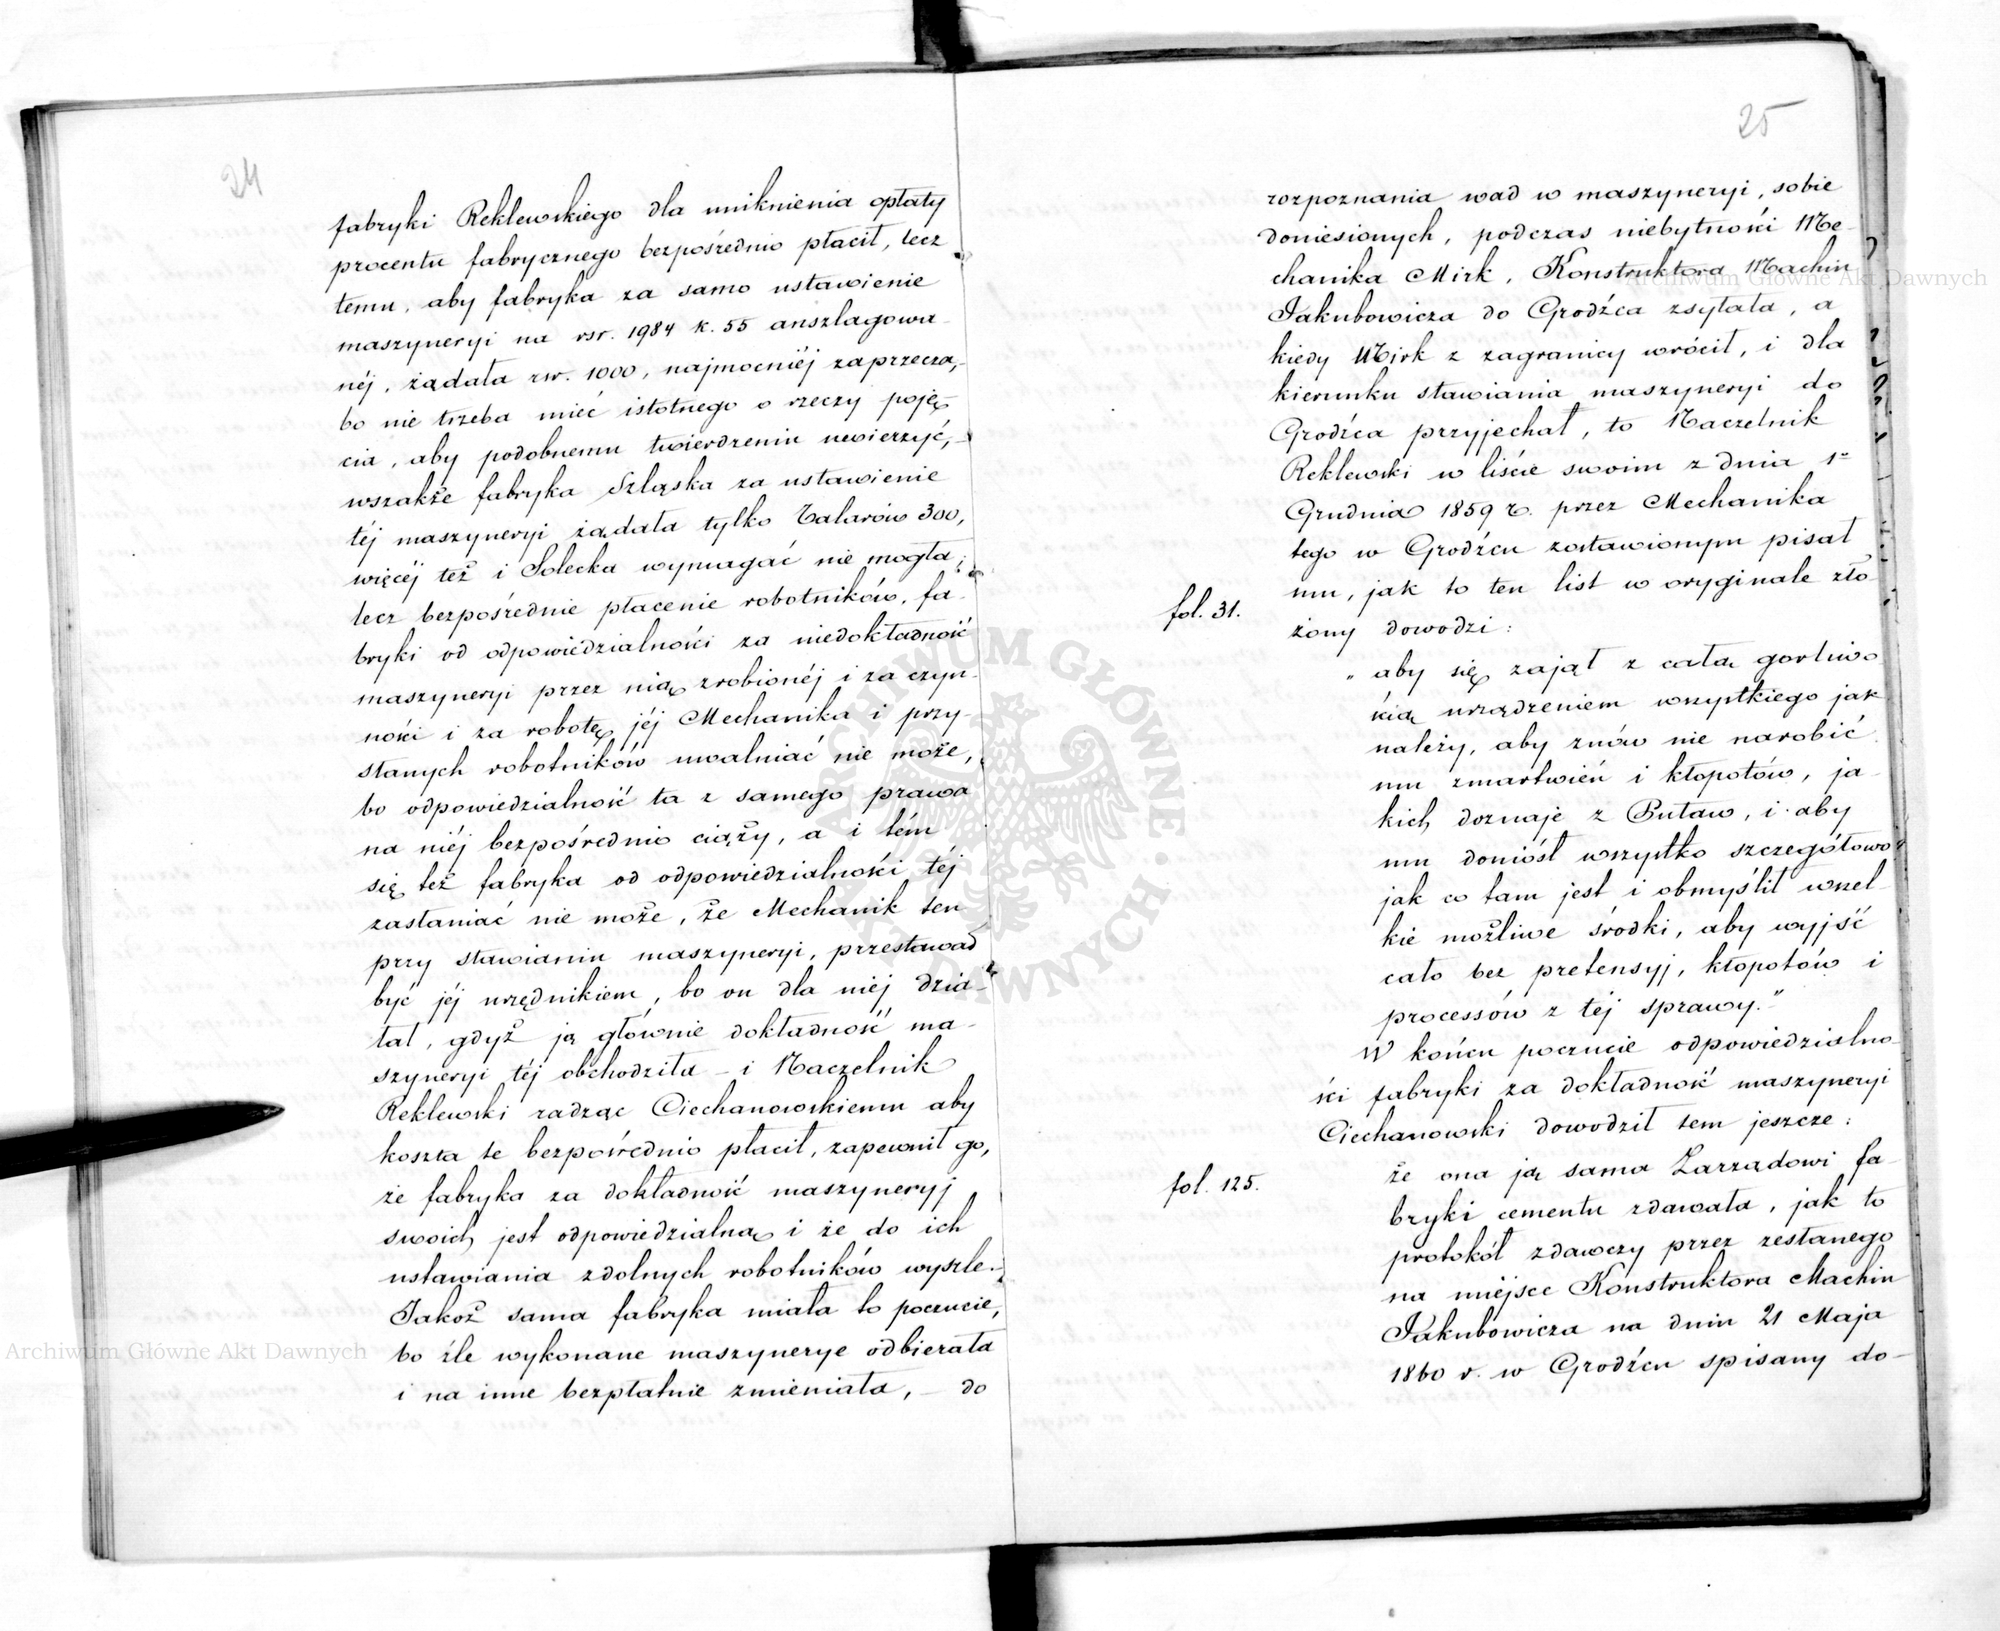 24
fabryki Reklewskiego dla uniknienia opłaty
procentu fabrycznego bezpośrednio płacił, lecz
temu, aby fabryka za samo ustawienie
maszyneryi na rsr. 1984 k. 55 anszlagowa-
néj, żądała rsr. 1000, najmocniéj zaprzecza,
bo nie trzeba mieć istotnego o rzeczy poję-
cia, aby podobnemu twierdzeniu uwierzyć,
wszakże fabryka Szląska za ustawienie
téj maszyneryi żądała tylko Talarów 300,
więcéj też i Solecka wymagać nie mogła;
lecz bezpośrednie płacenie robotników, fa-
bryki od odpowiedzialności za niedokładność
maszyneryi przez nią zrobionéj i za czyn-
ności i za robotę jéj Mechanika i przy-
stanych robotników uwalniać nie może,
bo odpowiedzialność ta z samego prawa
na niéj bezpośrednio ciąży, a i tém
się też fabryka od odpowiedzialności téj
zasłaniać nie może, że Mechanik ten
przy stawianiu maszyneryi, przestawał
być jéj urzędnikiem, bo on dla niéj dzia-
łał, gdyż ją głównie dokładność ma-
szyneryi téj obchodziła – i Naczelnik
Reklewski radząc Ciechanowskiemu aby
koszta te bezpośrednio płacił, zapewnił go,
że fabryka za dokładność maszyneryj
swoich jest odpowiedzialną i że do ich
ustawiania zdolnych robotników wyszle.
Jakoż sama fabryka miała to poczucie,
bo źle wykonane maszynerye odbierała
i na inne bezpłatnie zmieniała, – do
25
rozpoznania wad w maszyneryi, sobie
doniesionych, podczas niebytności Me-
chanika Mirk, Konstruktora Machin
Jakubowicza do Grodźca zsyłała, a
kiedy Mirk z zagranicy wrócił, i dla
kierunku stawiania maszyneryi do
Grodźca przyjechał, to Naczelnik
Reklewski w liście swoim z dnia 1º
Grudnia 1859 r. przez Mechanika
tego w Grodźcu zostawionym pisał
mu, jak to ten list w oryginale zło-
fol. 31.
żony dowodzi:
"aby się zajął z całą gorliwo-
ścią urządzeniem wszystkiego jak
należy, aby znów nie narobić
mu zmartwień i kłopotów, ja-
kich doznaje z Puław, i aby
mu doniósł wszystko szczegółowo
jak co tam jest i obmyślił wszel-
kie możliwe środki, aby wyjść
cało bez pretensyj, kłopotów i
processów z téj sprawy."
W końcu poczucie odpowiedzialno-
ści fabryki za dokładność maszyneryi
Ciechanowski dowodził tem jeszcze:
fol. 125.
że ona ją sama Zarządowi fa-
bryki cementu zdawała, jak to
protokół zdawczy przez zesłanego
na miéjsce Konstruktora Machin
Jakubowicza na dniu 21 Maja
1860 r. w Grodźcu spisany do-
Archiwum Główne Akt Dawnych
Archiwum Główne Akt Dawnych
ARCHIWUM GŁÓWNE AKT DAWNYCH